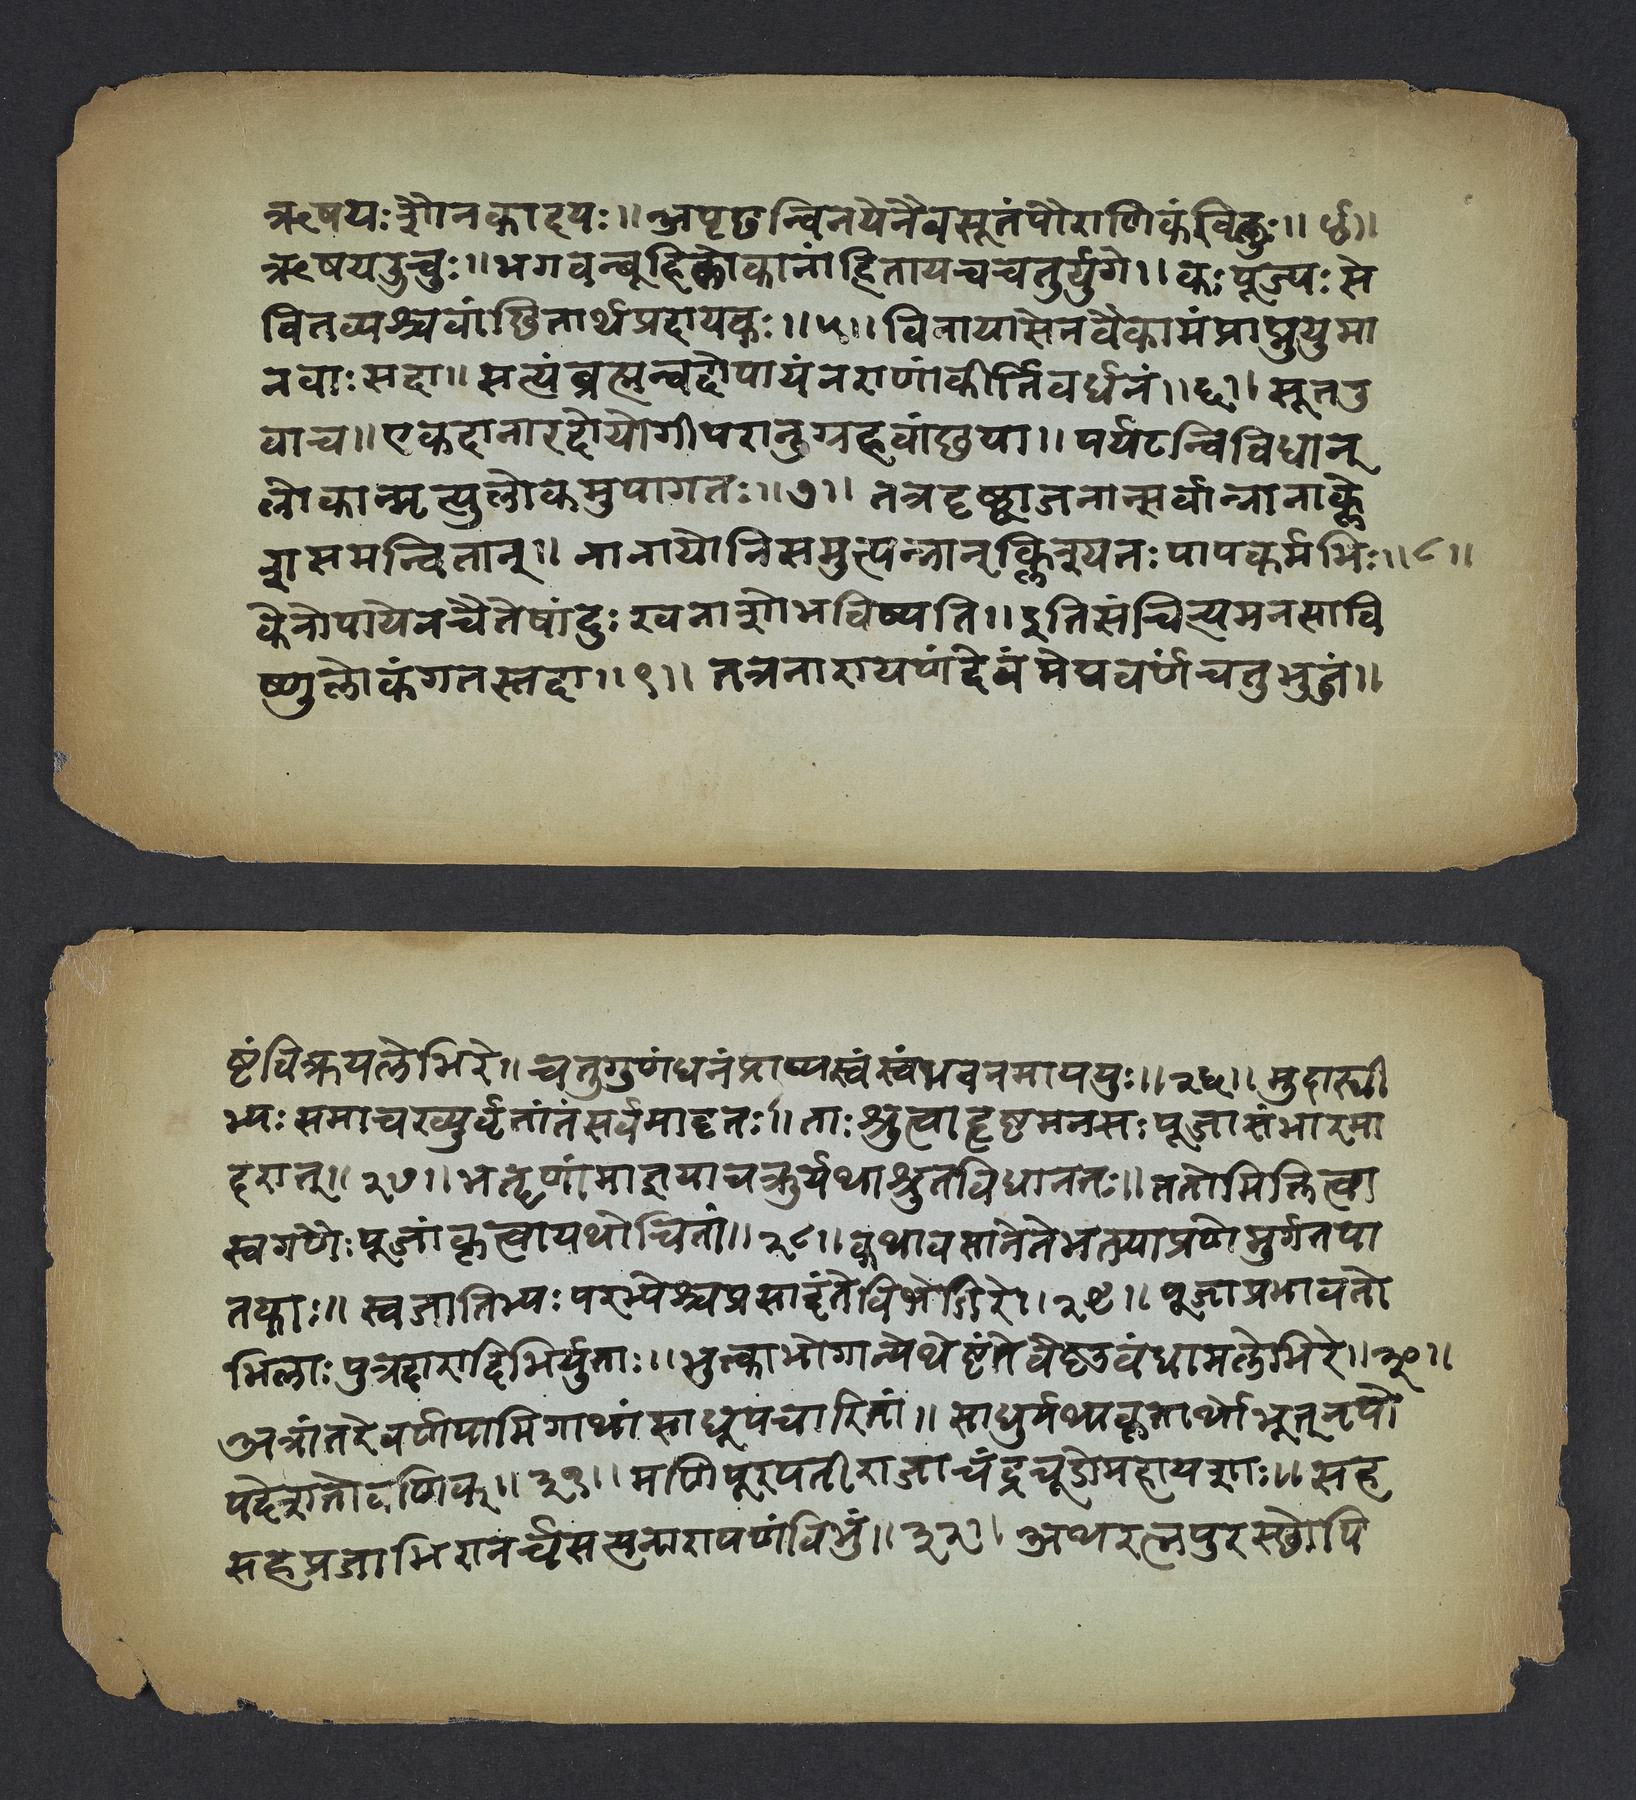 ऋषयःशौनकादयः॥अपृछन्विनयेनैवसूतंपौराणिकंकिल॥४॥
ऋषयउचुः॥भगवन्ब्रूहिलोकानांहितायचचतुर्युगे॥कःपूज्यःसे
वितव्यश्चवांछितार्थप्रदायकः॥५॥विनायासेनवैकामंप्राप्नुयुमा
नवाःसदा॥सत्यंब्रह्मन्वदोपायंनराणांकीर्तिवर्धनं॥६॥सूतउ
वाच॥एकदानारदोयोगीपरानुग्रहवांछया॥पर्यटन्विविधान्
लोकान्मृत्युलोकमुपागतः॥७॥तत्रदृष्ट्वाजनान्सर्वान्नानाक्ले
शसमन्वितान्॥नानायोनिसमुत्पन्नान्क्लिश्यतःपापकर्मभिः॥८॥
केनोपायेनचैतेषांदुःखनाशोभविष्यति॥इतिसंचित्यमनसावि
ष्णुलोकंगतस्तदा॥९॥तत्रनारायणंदेवंमेघवर्णंचतुभुजं॥
ष्टंविक्रयलेभिरे॥चतुगुणंधनंप्राप्यस्वंस्वंभवनमाययुः॥२६॥मुदास्त्री
भ्यःसमाचख्युर्वृतांतंसर्वमादृतः॥ताःश्रुत्वाहृष्टमनसःपूजासंभारमा
हरान्॥२७॥भर्तृणांमाज्ञयाचक्रुर्यथाश्रुतविधानतः॥ततोमिलित्वा
स्वगणैःपूजांकृत्वायथोचितां॥२८॥कथावसानेतेभक्त्याप्रणेमुर्गतपा
तकाः॥स्वजातिभ्यःपरभ्येश्चप्रसादंतेविभेजिरे॥२९॥पूजाप्रभावतो
भिलाःपुत्रदारादिभिर्युताः॥भुत्काभोगान्यथेष्टंतेवैष्णवंधामलेभिरे॥३०॥
अत्रांतरेवर्णयामिगाथांसाधूपचारितां॥साधुर्यथाकृतार्थोभूत्नृपो
पदेशतोवणिक्॥३१॥मणिपूरपतीराजाचंद्रचूडोमहायशाः॥सह
सहप्रजाभिरानर्चसत्यनारायणंविभुं॥३२॥अथरत्नपुरस्छोपि